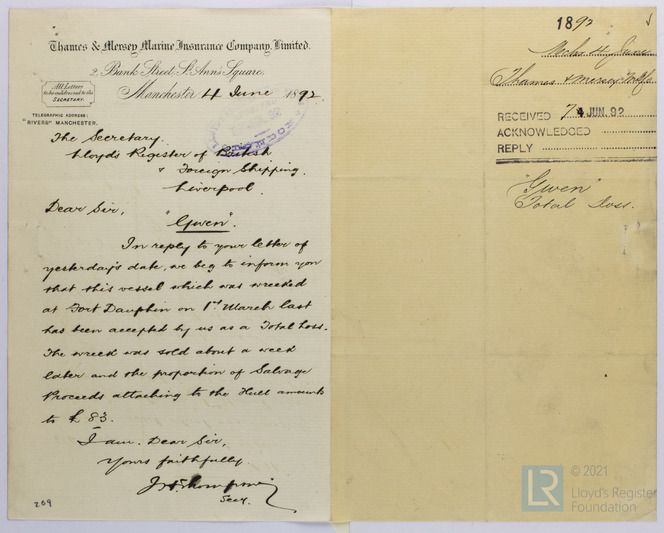 Thames & Mersey Marine Insurance Company, Limited.
2, Bank Street, St. Ann's Square,
Manchester 4 June 1892.
All Letters
to be addressed to the
SECRETARY.
TELEGRAPHIC ADDRESS:
"RIVERS" MANCHESTER.
The Secretary.
Lloyds Register of British
& Foreign Shipping.
Liverpool.
Dear Sir,
"Gwen".
In reply to your letter of
yesterday's date, we beg to inform you
that this vessel which was wrecked
at Fort Dauphin on 1st March last
has been accepted by us as a Total Loss.
The wreck was sold about a week
later and the proportion of Salvage
Proceeds attaching to the Hull amounts
to £83.
I am. Dear Sir,
Yours faithfully.
Secy.
209
1892
4 June
Thames & Mersey
RECEIVED JUN. 92
ACKNOWLEDGED
REPLY
"Gwen"
Total Loss.
LR
© 2021
Lloyd's Register
Foundation